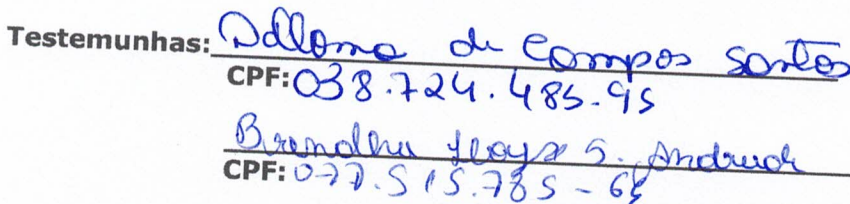 Testemunhas: Dalloma de Campos Santos
CPF: 038.724.485-95
Brendha S. Andrade
CPF: 077.515.785-65